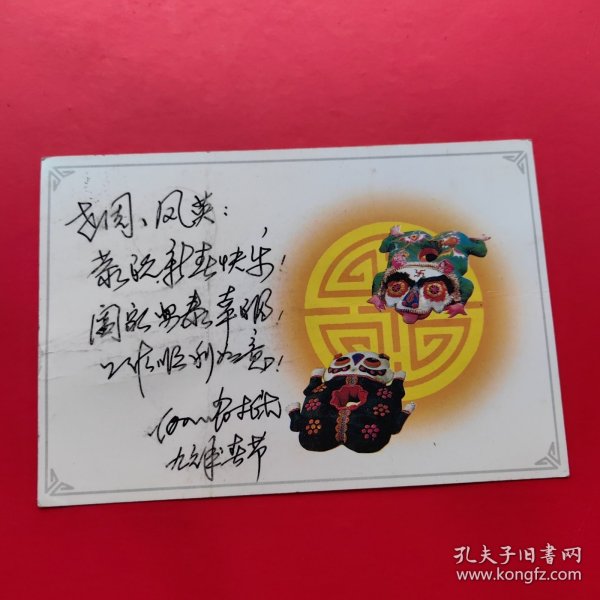 、凤英：
恭祝新春快乐！
阖家安泰幸福！
工作顺利如意！
九六年春节
孔夫子旧书网
www.kongfz.com